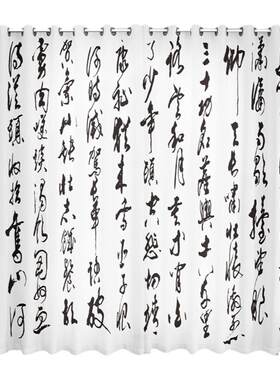 瀟瀟雨歇抬望眼
仰天長嘯壯懷激烈
三十功名塵與土八千里
路雲和月莫等閒白
了少年頭空悲切靖
康恥猶未雪臣子恨
何時滅駕長車踏破
賀蘭山缺壯志飢餐胡
虜肉笑談渴飲匈奴血
待從頭收拾舊山河